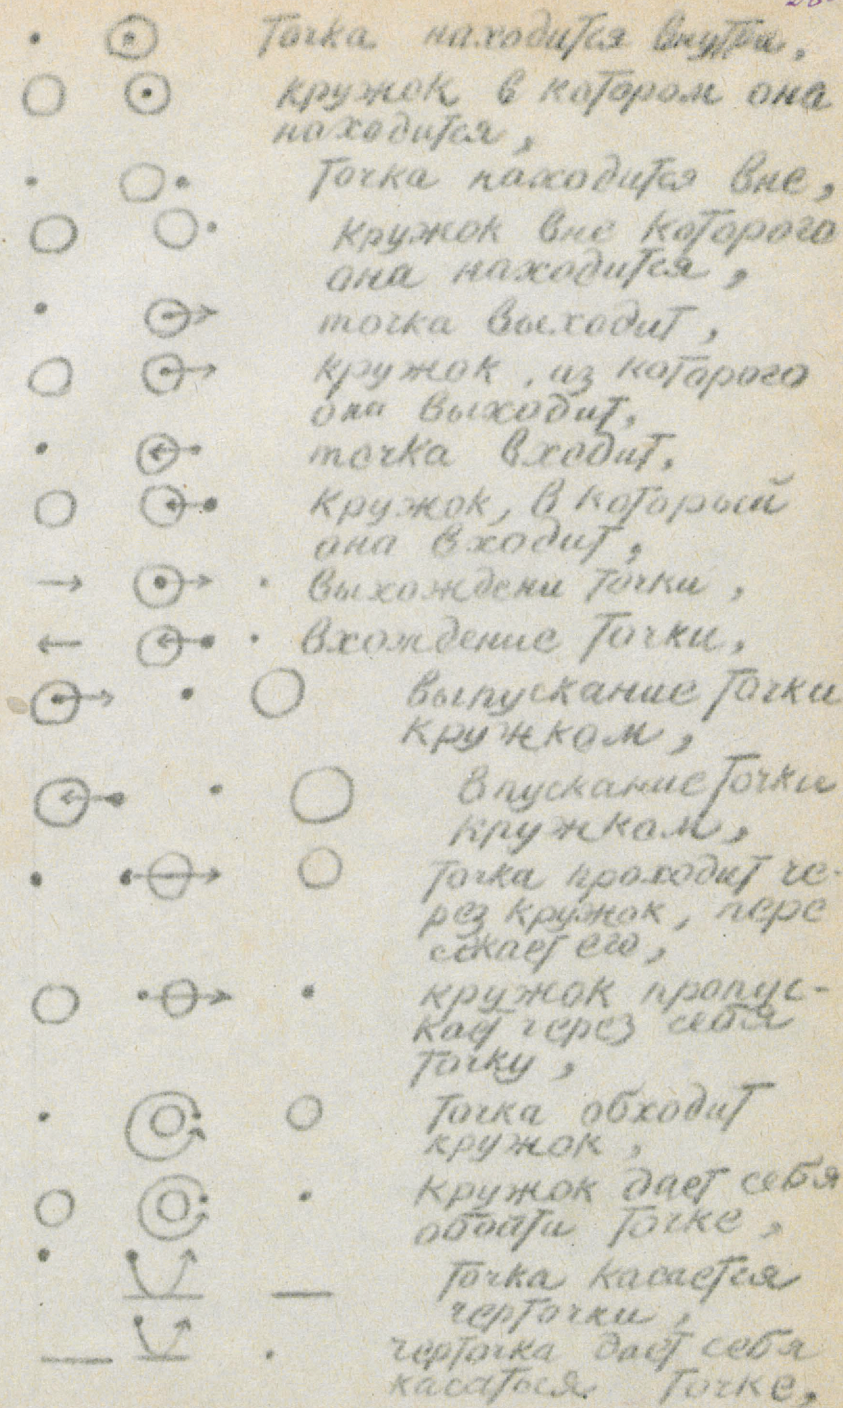 точка находится внутри,
кружок в котором она
находится,
точка находится вне,
кружок вне которого
она находится,
точка выходит,
кружок, из которого
она выходит,
точка входит,
кружок, в который
она входит,
выхождени точки,
вхождение точки,
выпускание точки
кружком,
впускание точки
кружком,
точка проходит че-
рез кружок, пере
секает его,
кружок пропус-
кает через себя
точку,
точка обходит
кружок,
кружок дает себя
обойти точке,
точка касается
черточки,
черточка дает себя
касаться точке,